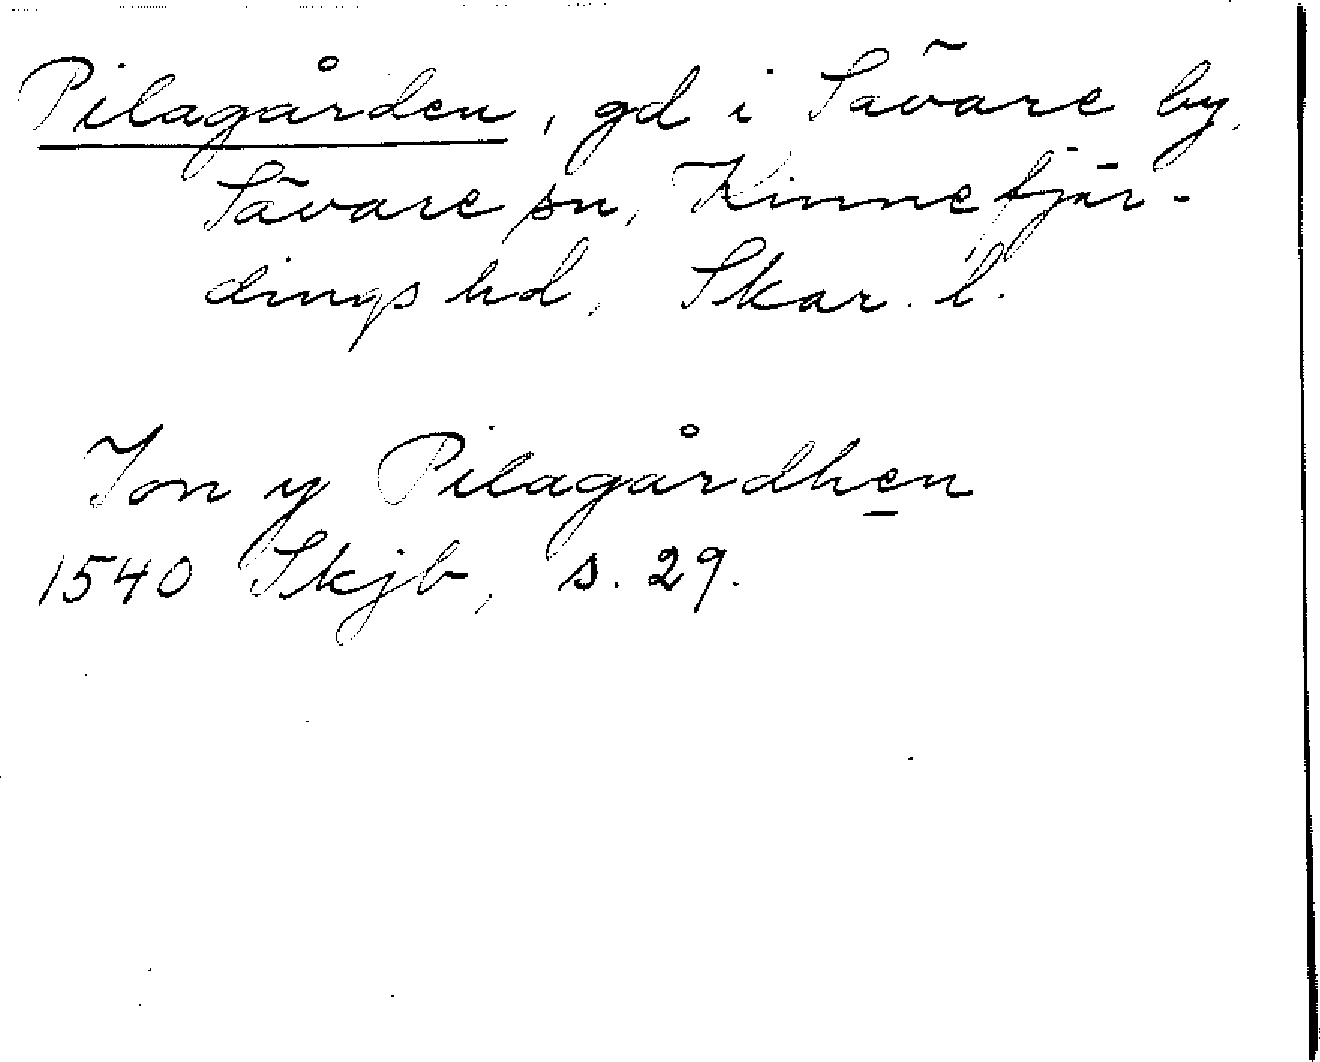 Pilagården, gd i Sävare by,
Sävare sn, Kinnefjär-
dings hd, Skar. l.
Jon y Pilagårdhen
1540 Skjb, s. 29.